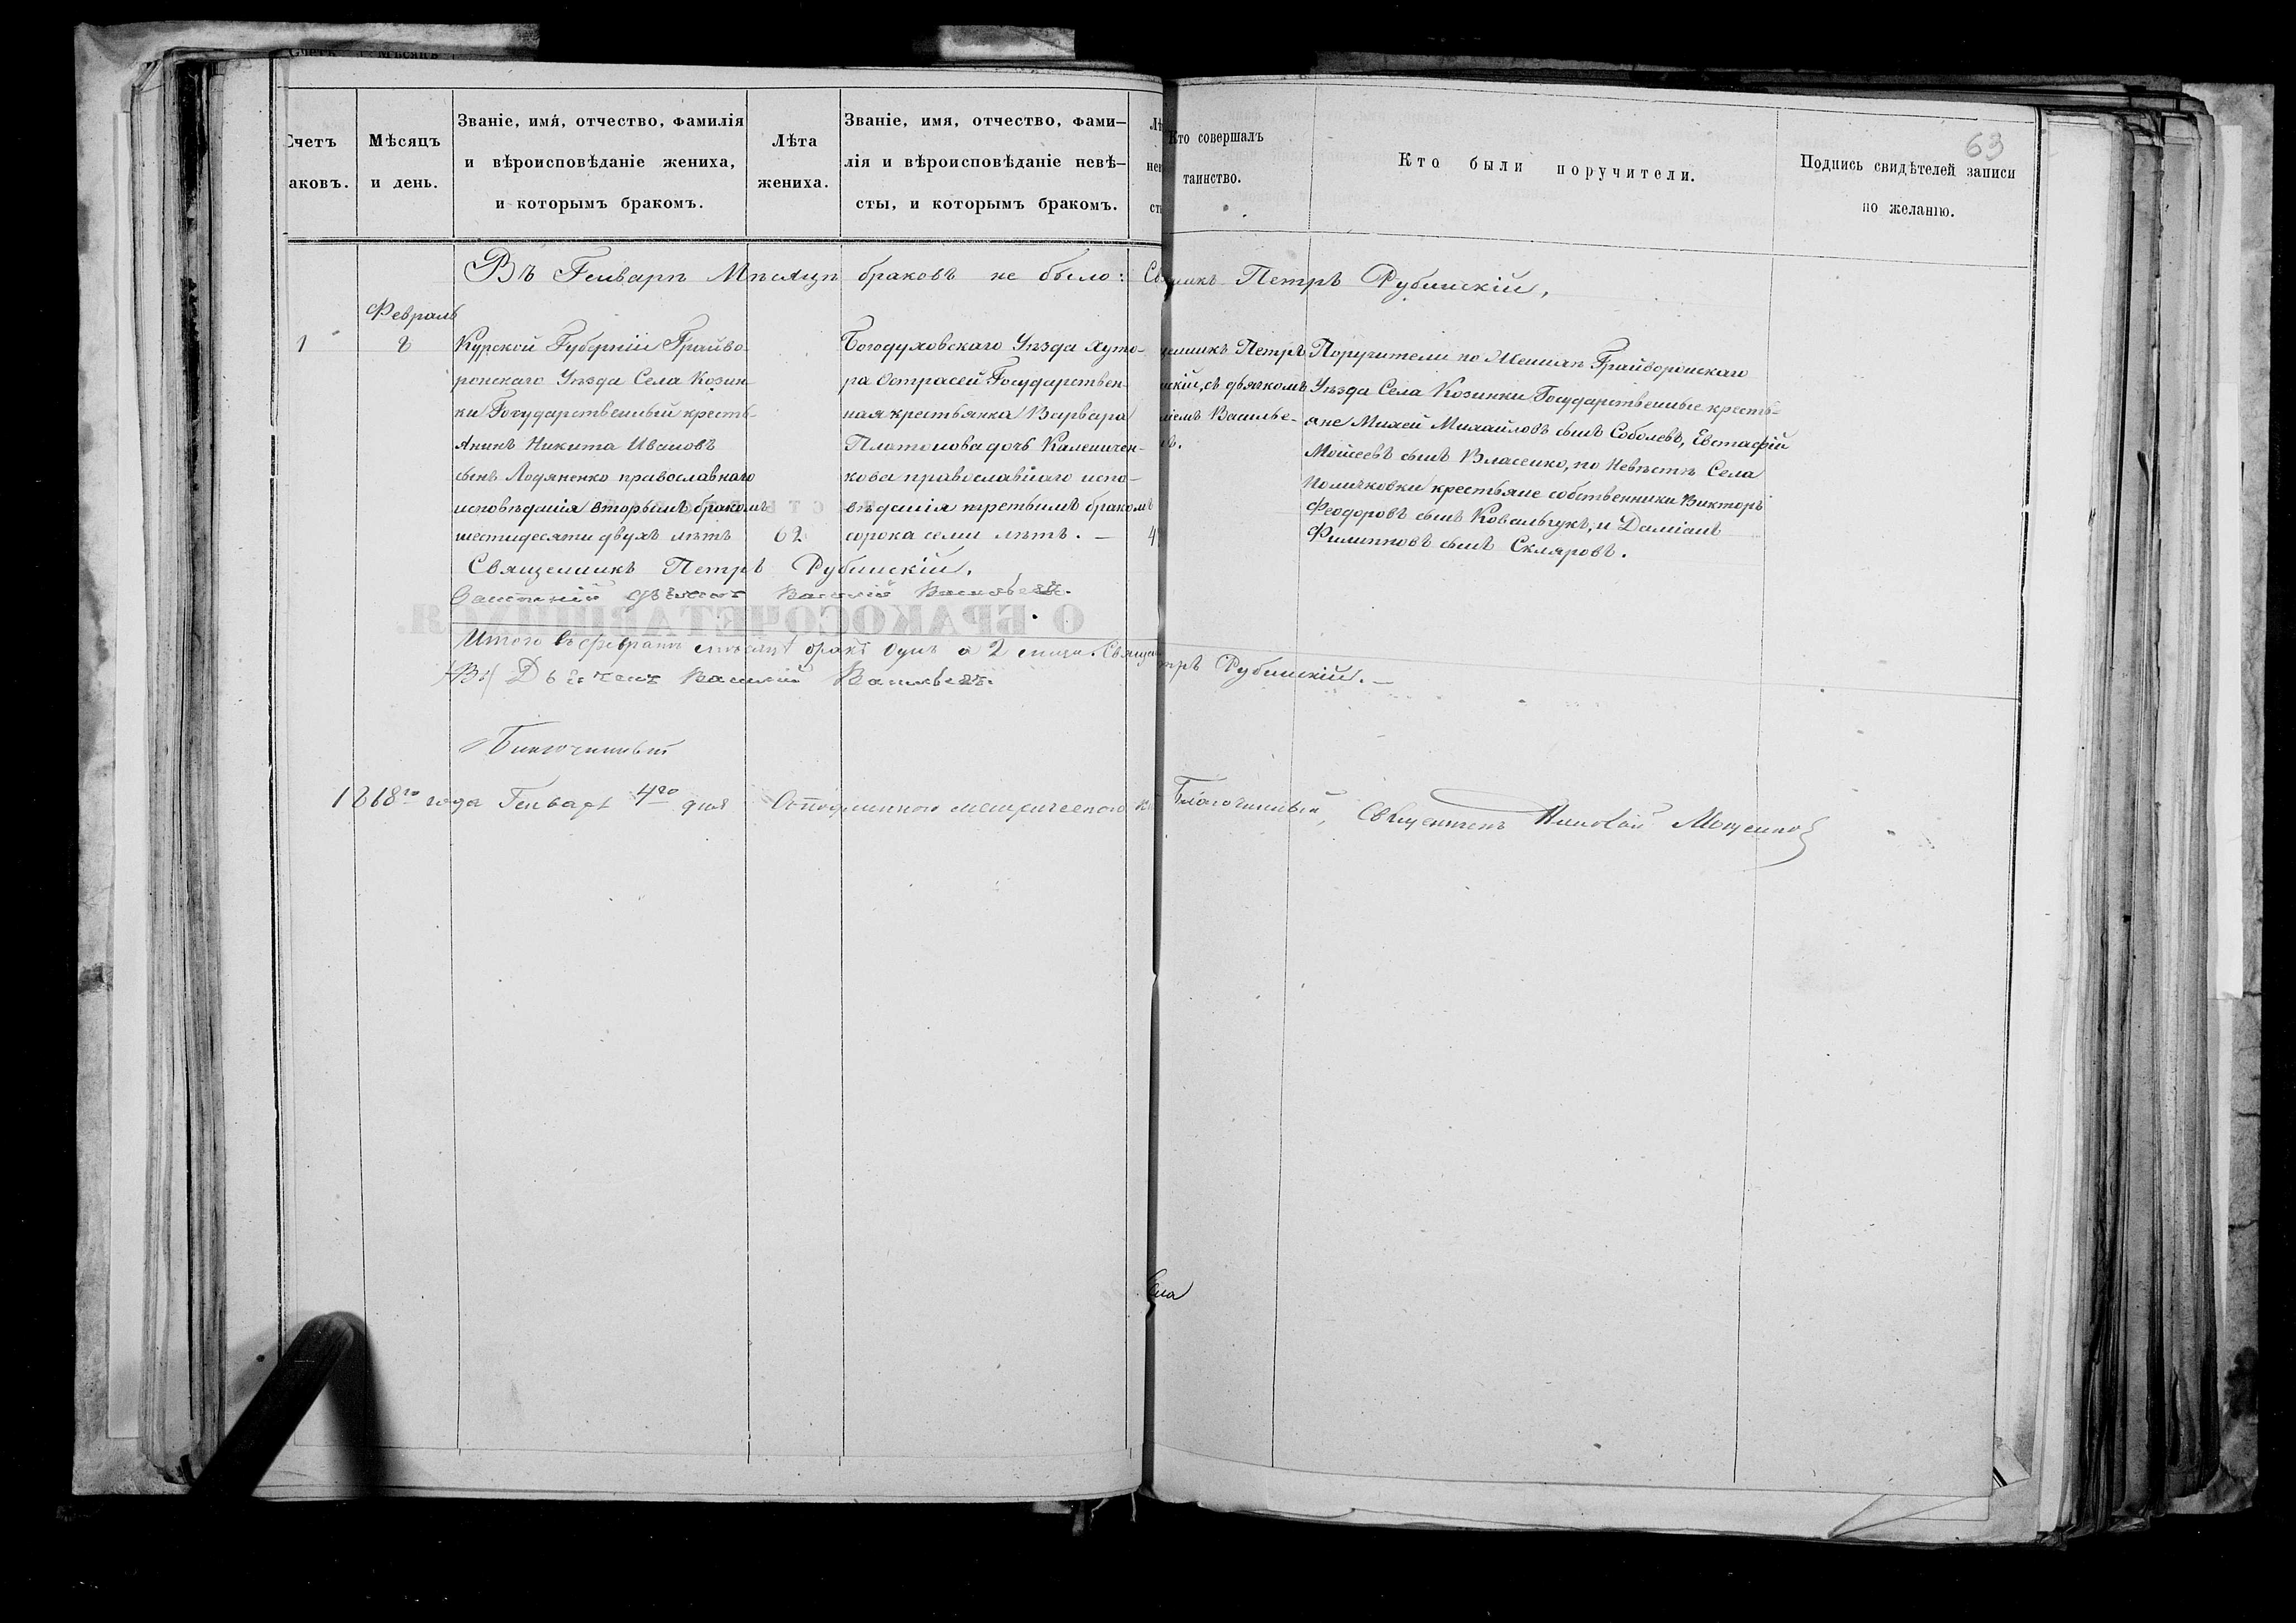 Счетъ Мѣсяцъ
63
Счетъ
аковъ.
Мѣсяцъ
и день.
Званіе, имя, отчество, фамилія
и вѣроисповѣданіе жениха,
и которымъ бракомъ.
Лѣта
жениха.
Званіе, имя, отчество, фами–
лія и вѣроисповѣданіе невѣ–
сты, и которымъ бракомъ.
Лѣ
нев
ст
Кто совершалъ
таинство.
Кто были поручители.
Подпись свидѣтелей записи
по желанію.
Въ Генварѣ Мѣсяцѣ браковъ не было: Св
никъ Петръ Рубинскій,
Февраль
1
8
Курской Губерніи Грайво-
ронскаго Уѣзда Села Козин-
ки Государственный кресть-
янинъ Никита Ивановъ
сынъ Лодяненко православнаго
исповѣданія вторымъ бракомъ
шестидесяти двухъ лѣтъ
62
Богодуховскаго Уѣзда Хуто-
ра Острасей Государствен-
ная крестьянка Варвара
Платонова дочь Каленичен-
кова православнаго испо-
вѣданія третьимъ бракомъ
сорока семи лѣтъ. —
4
щенникъ Петръ
скій, съ дьячкомъ
ліемъ Василье-
въ.
Поручители по Женихѣ Грайворонскаго
Уѣзда Села Козинки Государственные кресть-
яне Михей Михайловъ сынъ Соболевъ, Евстафій
Мойсеевъ сынъ Власенко, по Невѣстѣ Села
Поличковки крестьяне собственники Викторъ
Феодоровъ сынъ Ковальчукъ, и Даміанъ
Филипповъ сынъ Скляровъ.
Священникъ Петръ Рубинскій,
дьячекъ Василій Васильевъ.
О БРАКОСОЧЕТАВШИХСЯ.
Итого въ февралѣ мѣсяцѣ бракъ одинъ а 2 лица. Свящ
тръ Рубинскій. —
Дьячекъ Василій Васильевъ.
Благочинный
1868го года Генваря 4го дня Съ подлинною метрическою кн
Благочинный, Священникъ Николай
Села